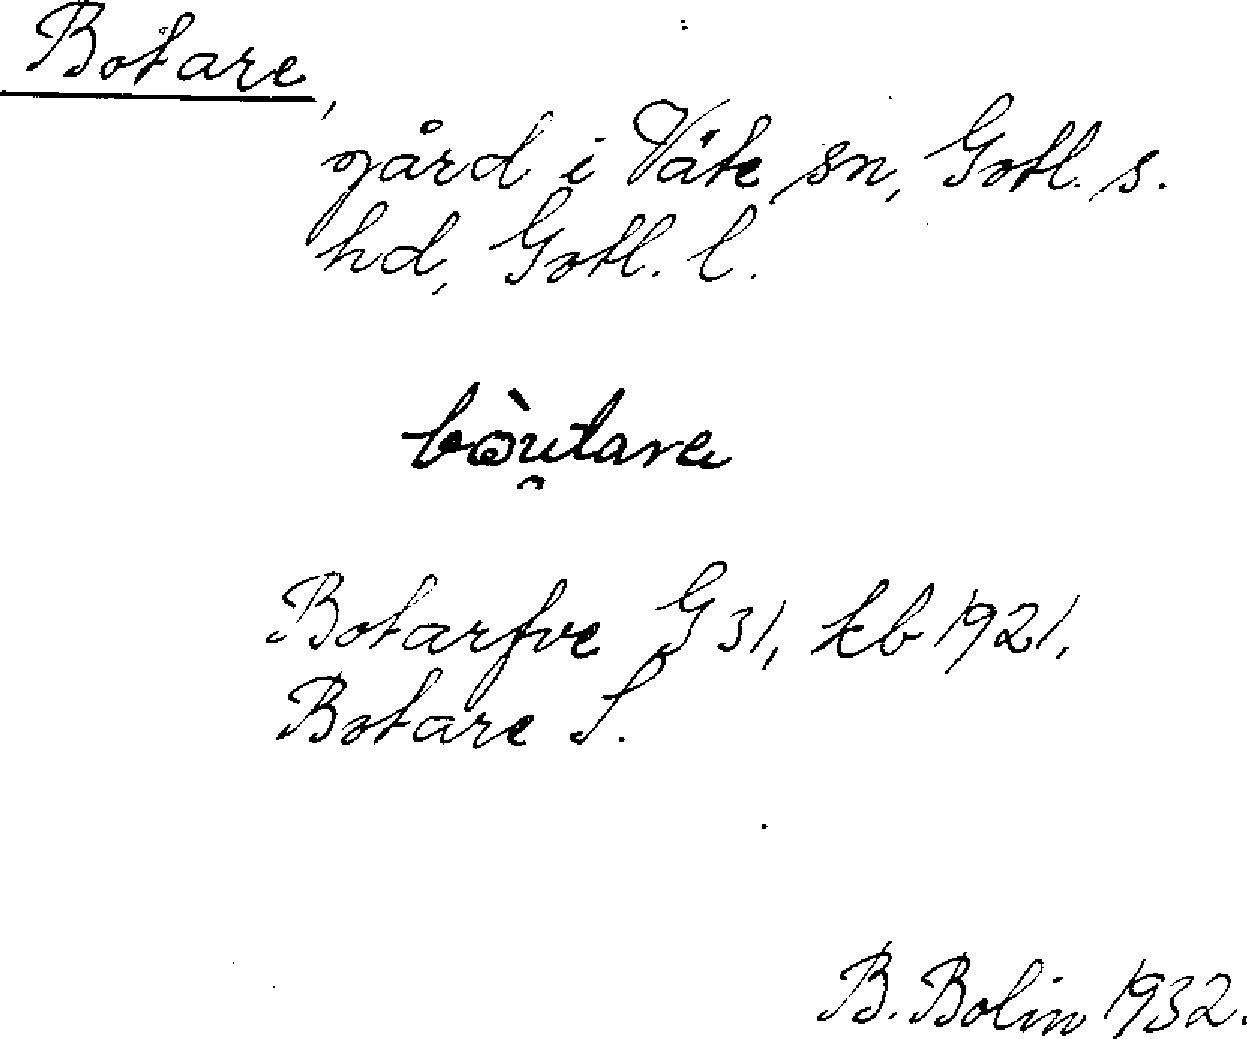 Botare,
gård i Väte sn, Gotl. s.
hd, Gotl. l.
bòu̯tare
Botarfve G 31, kb 1921,
Botare S.
B. Bolin 1932.